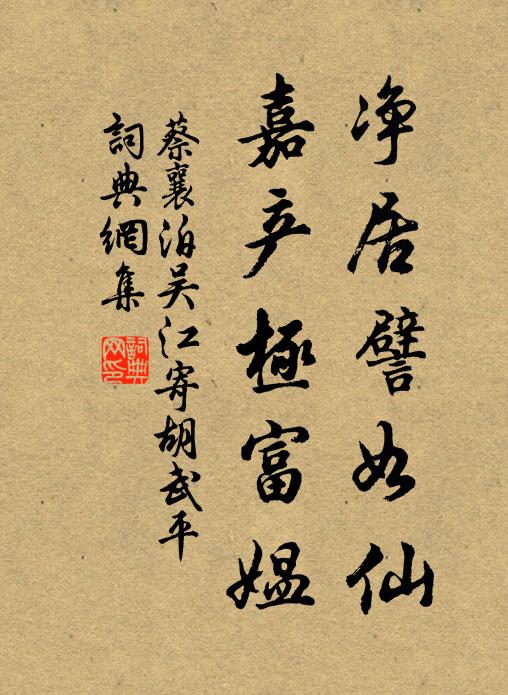 净居譬如仙
嘉产極富媼
蔡襄泊吴江寄胡武平
詞典網集
詞典网印